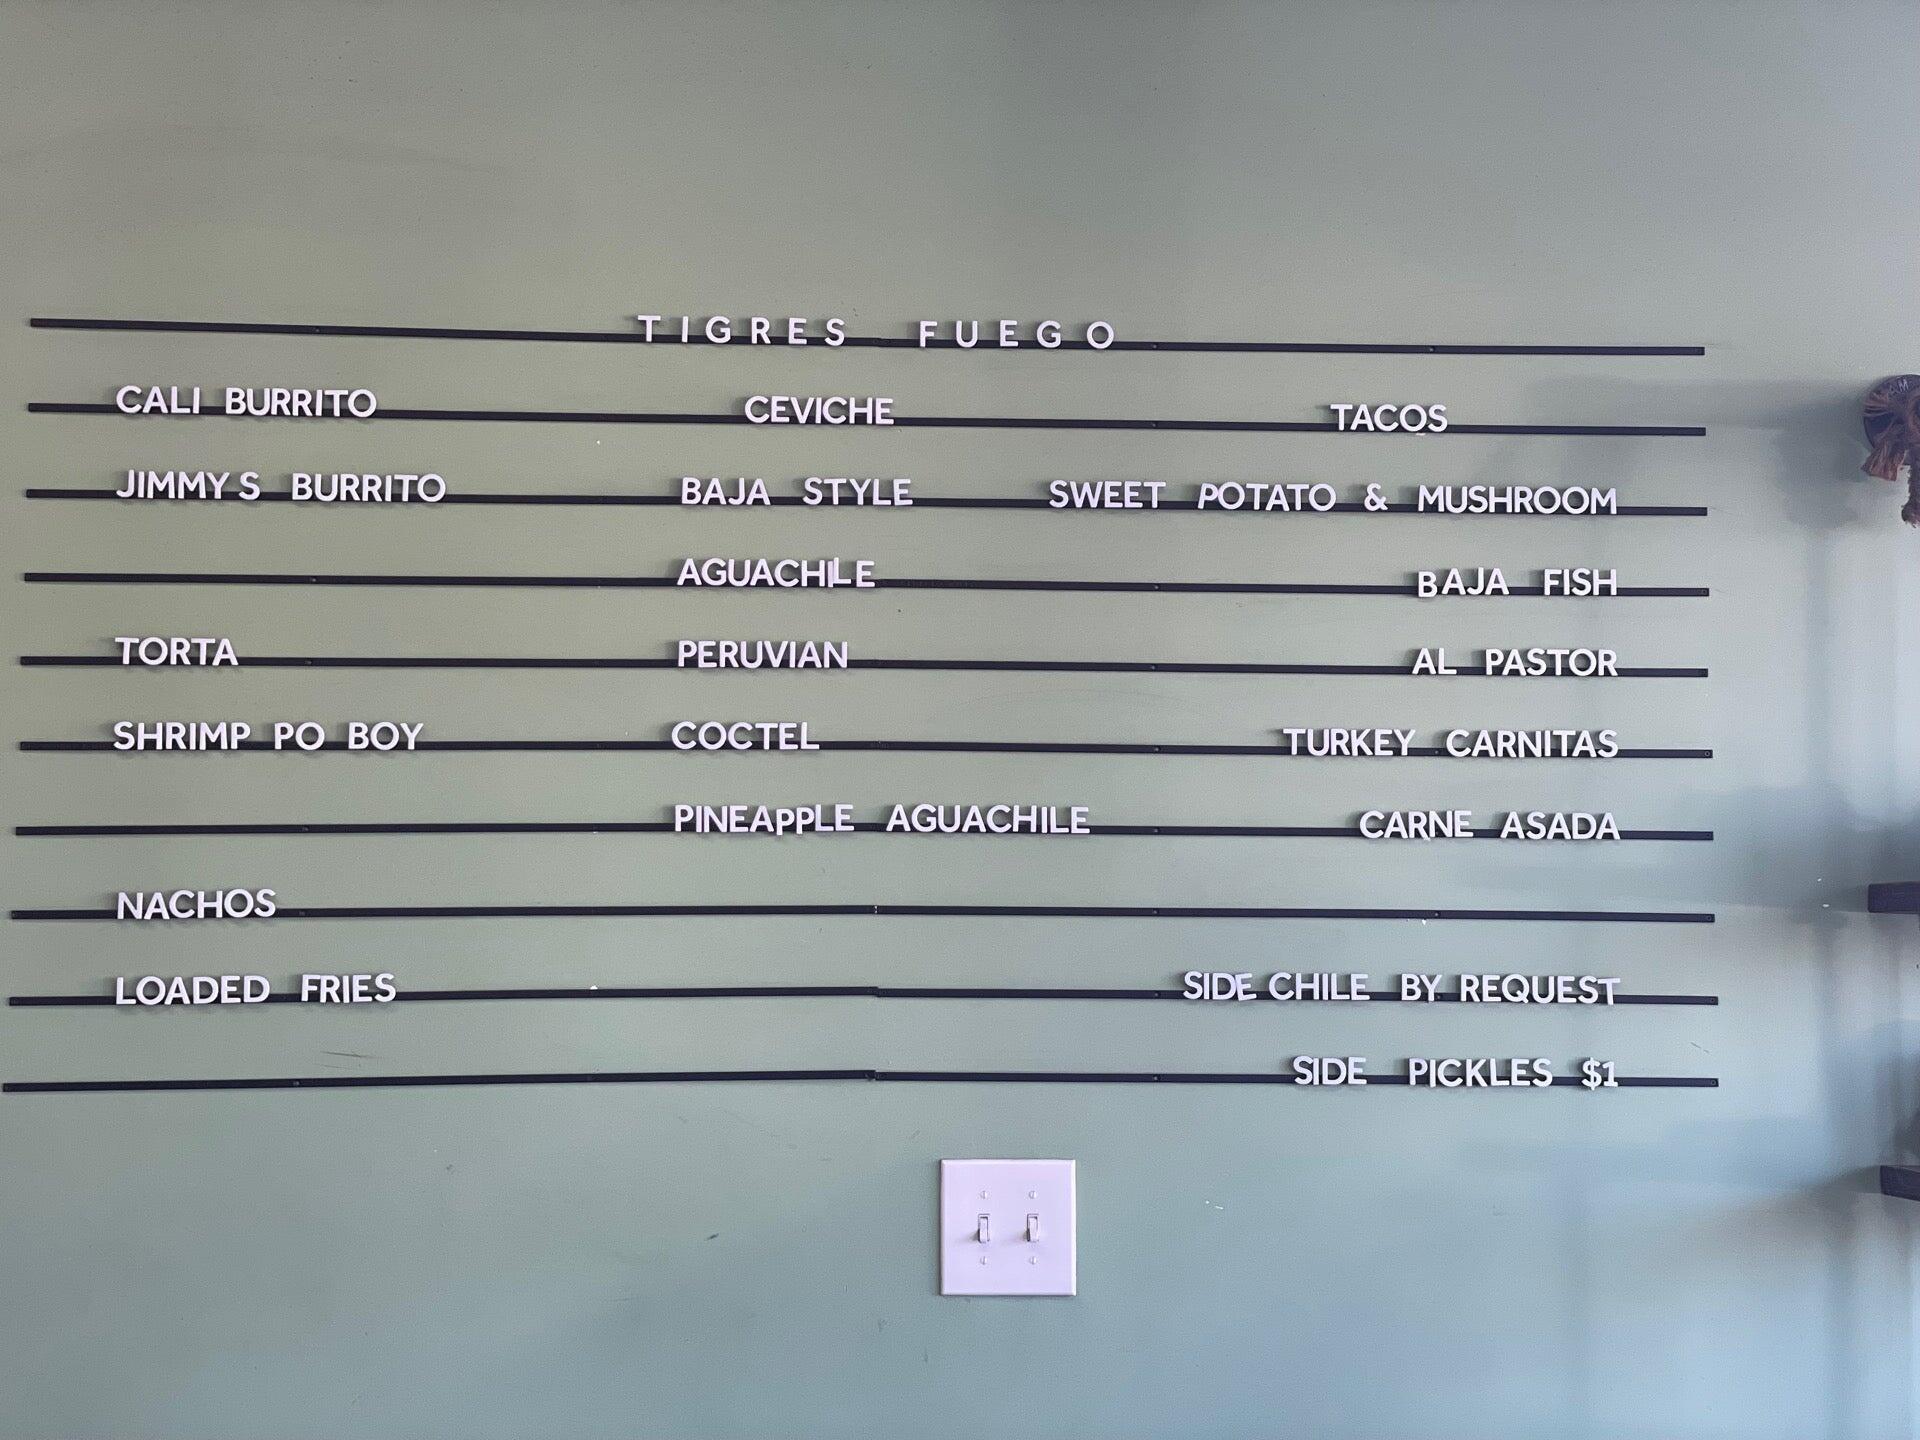 TIGRES FUEGO
CALI BURRITO CEVICHE TACOS
JIMMYS BURRITO BAJA STYLE SWEET POTATO & MUSHROOM
AGUACHILE BAJA FISH
TORTA PERUVIAN AL PASTOR
SHRIMP PO BOY COCTEL TURKEY CARNITAS
PINEAPPLE AGUACHILE CARNE ASADA
NACHOS
LOADED FRIES SIDE CHILE BY REQUEST
SIDE PICKLES $1